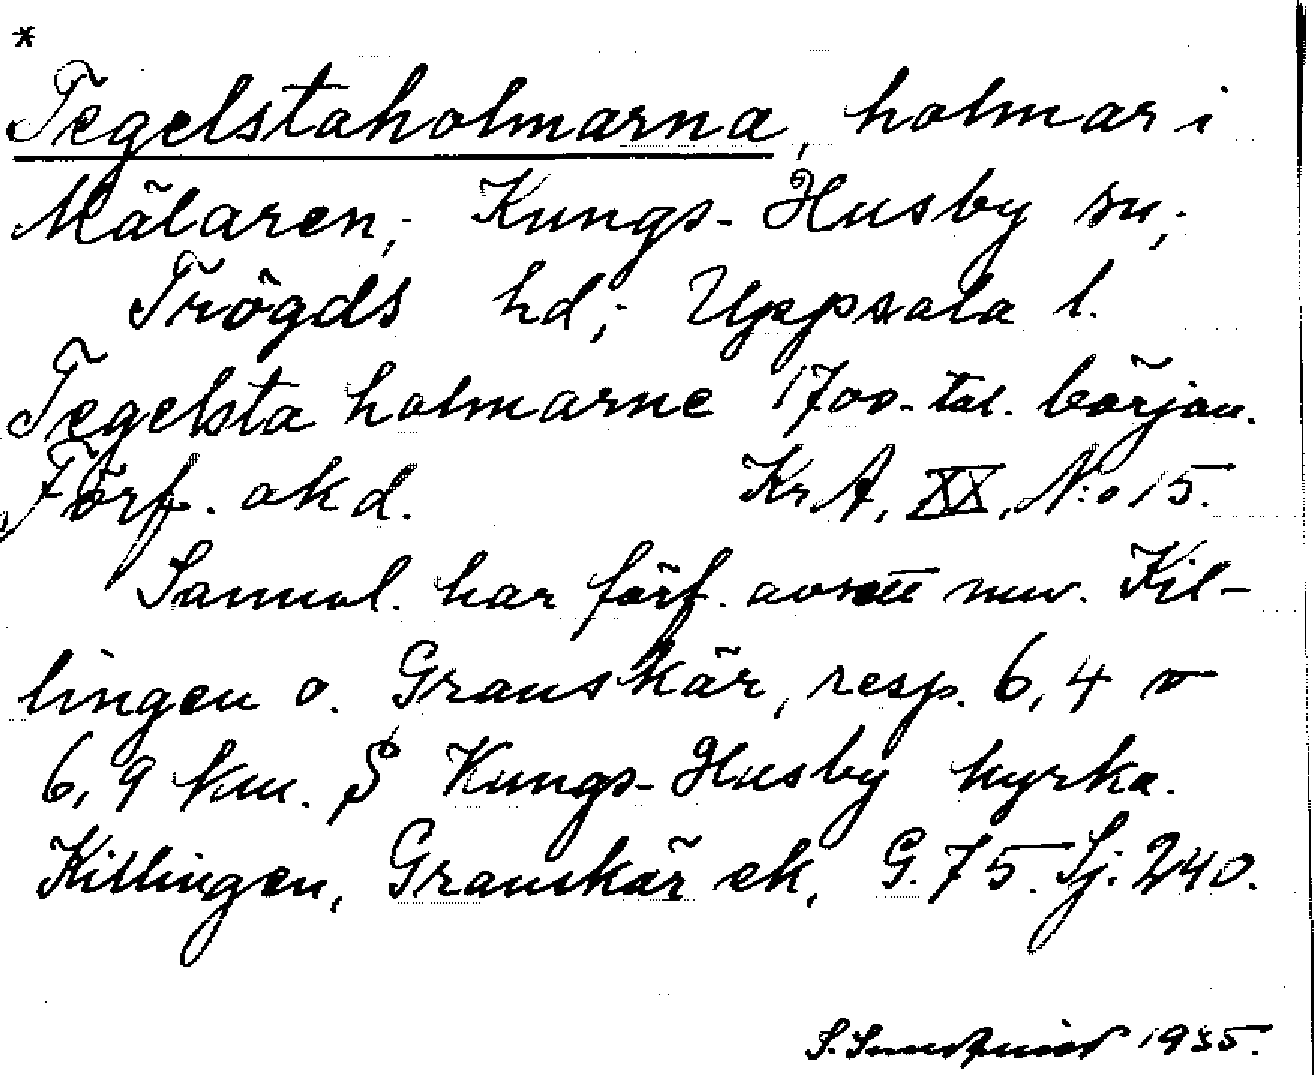 *
Tegelstaholmarna, holmar i
Mälaren; Kungs-Husby sn;
Trögds hd; Uppsala l.
Tegelsta holmarne 1700-tal. början.
Förf. okd. KrA, XX, N:o 15.
Sannol. har förf. avsett nuv. Kil-
lingen o. Granskär, resp. 6,4 o
6,9 km. S Kungs-Husby kyrka.
Killingen, Granskär ek, G. 75. Sj. 240.
1935.